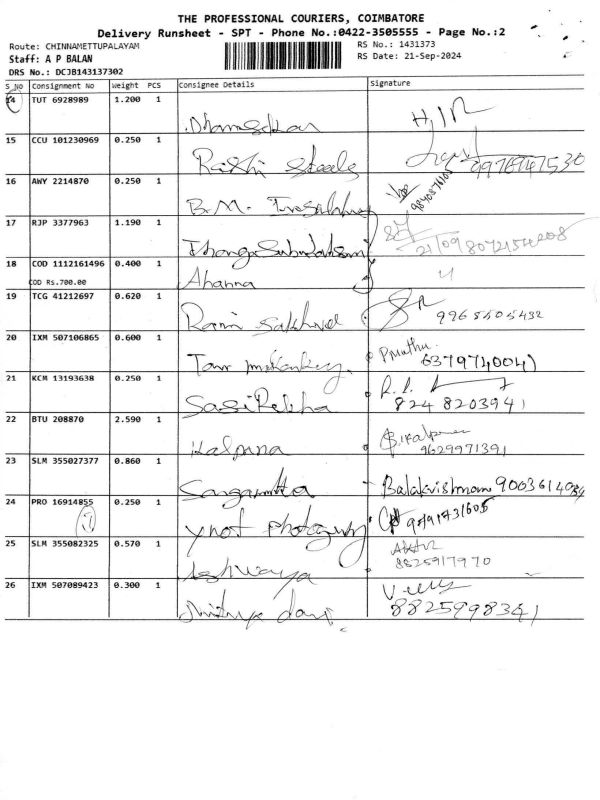 THE PROFESSIONAL COURIERS, COIMBATORE
Delivery Runsheet - SPT - Phone No.:0422-3505555 - Page No.:2
Route: CHINNAMETTUPALAYAM
RS No.: 1431373
Staff: A P BALAN
RS Date: 21-Sep-2024
DRS No.: DCJB143137302
S_No Consignment No Weight PCS Consignee Details Signature
14 TUT 6928989 1.200 1
15 CCU 101230969 0.250 1 Rashi steels
16 AWY 2214870 0.250 1 B.M.
17 RJP 3377963 1.190 1
18 COD 1112161496 0.400 1 Ahanna
COD Rs.700.00
19 TCG 41212697 0.620 1 9965505432
20 IXM 507106865 0.600 1 Pmuthu.
6379740041
21 KCM 13193638 0.250 1 SasiRekha
824 8203941
22 BTU 208870 2.590 1 Kalpana
9629971391
23 SLM 355027377 0.860 1 Sangamitta Balakrishnan
24 PRO 16914855 0.250 1 ynot photography
25 SLM 355082325 0.570 1 Ishwarya
8825917970
26 IXM 507089423 0.300 1
8825998341